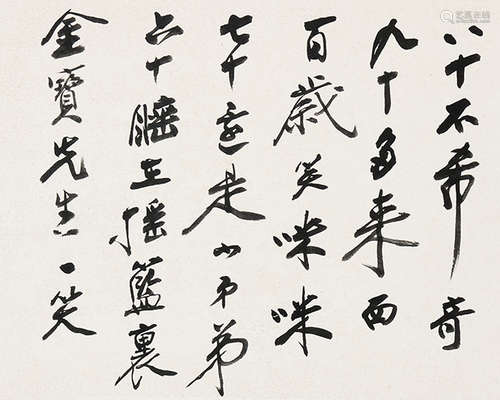 八十不希奇
九十多来西
百歲笑咪咪
七十還是小弟弟
六十睡在摇籃裏
金寶先生一笑